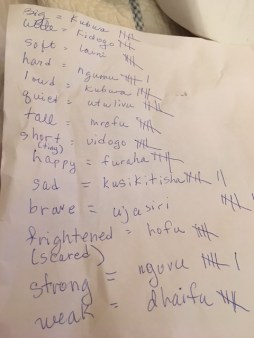 big = Kubwa
little = Kidogo
soft = laini
hard = ngumu
loud = kubwa
quiet = utulivu
tall = mrefu
short = vidogo
(tiny)
happy = furaha
sad = kusikitisha
brave = ujasiri
frightened = hofu
(scared)
strong = nguvu
weak = dhaifu